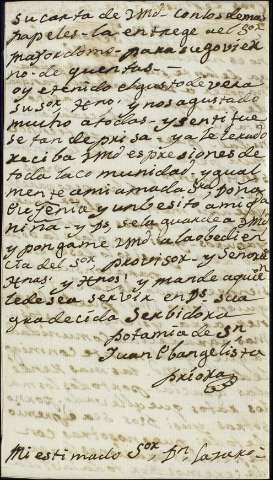 su carta de Vmd con los demas
papeles - la entrege al Sor
mayordomo - para su govier
no - de quentas -
oy e tenido el gusto de ver a
su Sor Hno, y nos a gustado
mucho a todas - y senti fue
se tan de prisa - ya le
reciba Vmd espresiones de
toda la comunidad, y qual
mente a mi amada Da Dona
y un besito a mi
niña - y Ds se la guarde a Vmd
y pongame Vmd a la obedien
cia del Sor provisor - y Señora
Hnas, y Hnos, y mande a quien
le desea servir en Ds su a
gradecida Serbidora
Potamia de Sn
Juan Ebangelista
priora
Mi estimado Sor Dn Lazaro -